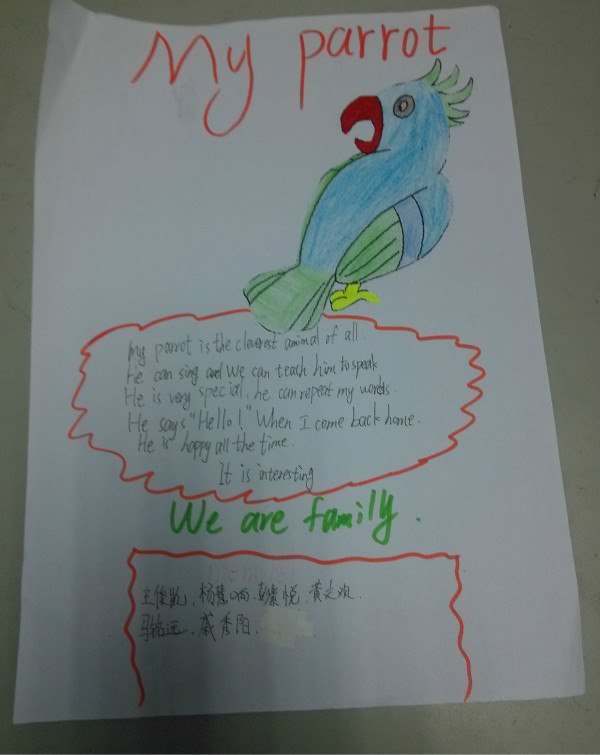 My parrot
My parrot is the cleverest animal of all.
He can sing and we can teach him to speak
He is very special. he can repeat my words.
He says "Hello!" When I come back home.
He is happy all the time.
It is interesting
We are family.
王俊凯、杨慧、悦、黄
马铭远、戴秀阳.